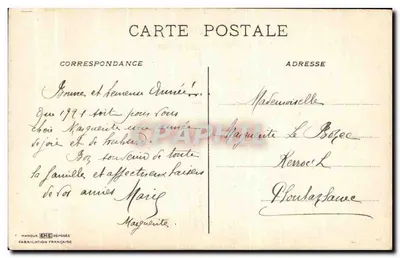 CARTE POSTALE
CORRESPONDANCE
ADRESSE
Bonne et heureuse Année!..
Que 1921 soit pour vous
chère Marguerite une année
de joie et de bonheur
Bon souvenir de toute
la famille et affectueux baisers
de vos amies Marie
Marguerite
Mademoiselle
Marguerite Le Bozec
Ploubazlanec
MARQUE DÉPOSÉE
FABRICATION FRANÇAISE